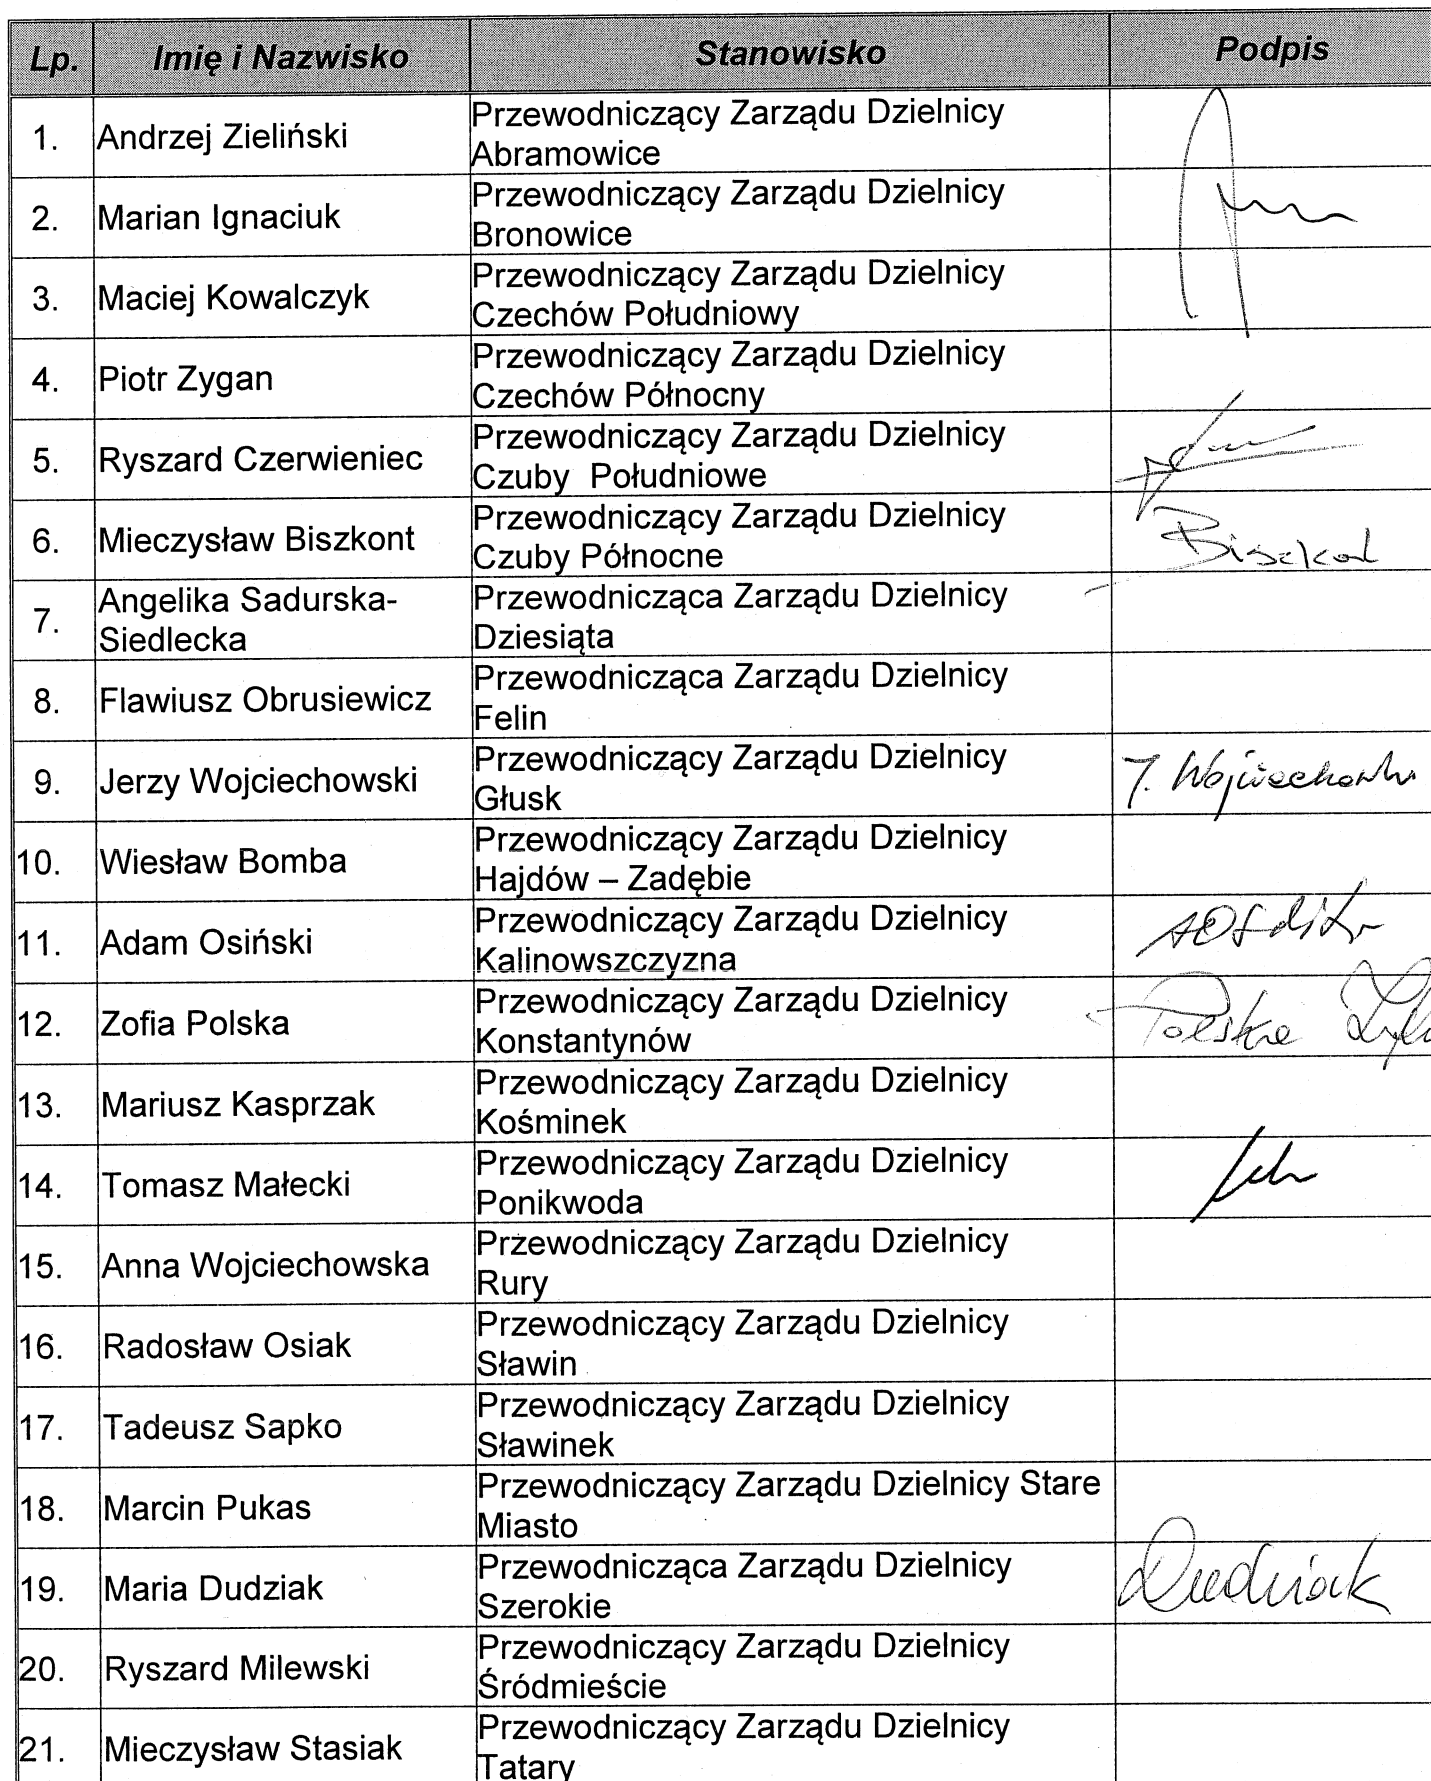 Lp. Imię i Nazwisko Stanowisko Podpis
1. Andrzej Zieliński Przewodniczący Zarządu Dzielnicy
Abramowice
2. Marian Ignaciuk Przewodniczący Zarządu Dzielnicy
Bronowice
3. Maciej Kowalczyk Przewodniczący Zarządu Dzielnicy
Czechów Południowy
4. Piotr Zygan Przewodniczący Zarządu Dzielnicy
Czechów Północny
5. Ryszard Czerwieniec Przewodniczący Zarządu Dzielnicy
Czuby Południowe
6. Mieczysław Biszkont Przewodniczący Zarządu Dzielnicy
Czuby Północne
7. Angelika Sadurska- Przewodnicząca Zarządu Dzielnicy
Siedlecka Dziesiąta
8. Flawiusz Obrusiewicz Przewodnicząca Zarządu Dzielnicy
Felin
9. Jerzy Wojciechowski Przewodniczący Zarządu Dzielnicy J. Wojciechowski
Głusk
10. Wiesław Bomba Przewodniczący Zarządu Dzielnicy
Hajdów – Zadębie
11. Adam Osiński Przewodniczący Zarządu Dzielnicy
Kalinowszczyzna
12. Zofia Polska Przewodniczący Zarządu Dzielnicy Polska
Konstantynów
13. Mariusz Kasprzak Przewodniczący Zarządu Dzielnicy
Kośminek
14. Tomasz Małecki Przewodniczący Zarządu Dzielnicy
Ponikwoda
15. Anna Wojciechowska Przewodniczący Zarządu Dzielnicy
Rury
16. Radosław Osiak Przewodniczący Zarządu Dzielnicy
Sławin
17. Tadeusz Sapko Przewodniczący Zarządu Dzielnicy
Sławinek
18. Marcin Pukas Przewodniczący Zarządu Dzielnicy Stare
Miasto
19. Maria Dudziak Przewodnicząca Zarządu Dzielnicy Dudziak
Szerokie
20. Ryszard Milewski Przewodniczący Zarządu Dzielnicy
Śródmieście
21. Mieczysław Stasiak Przewodniczący Zarządu Dzielnicy
Tatary